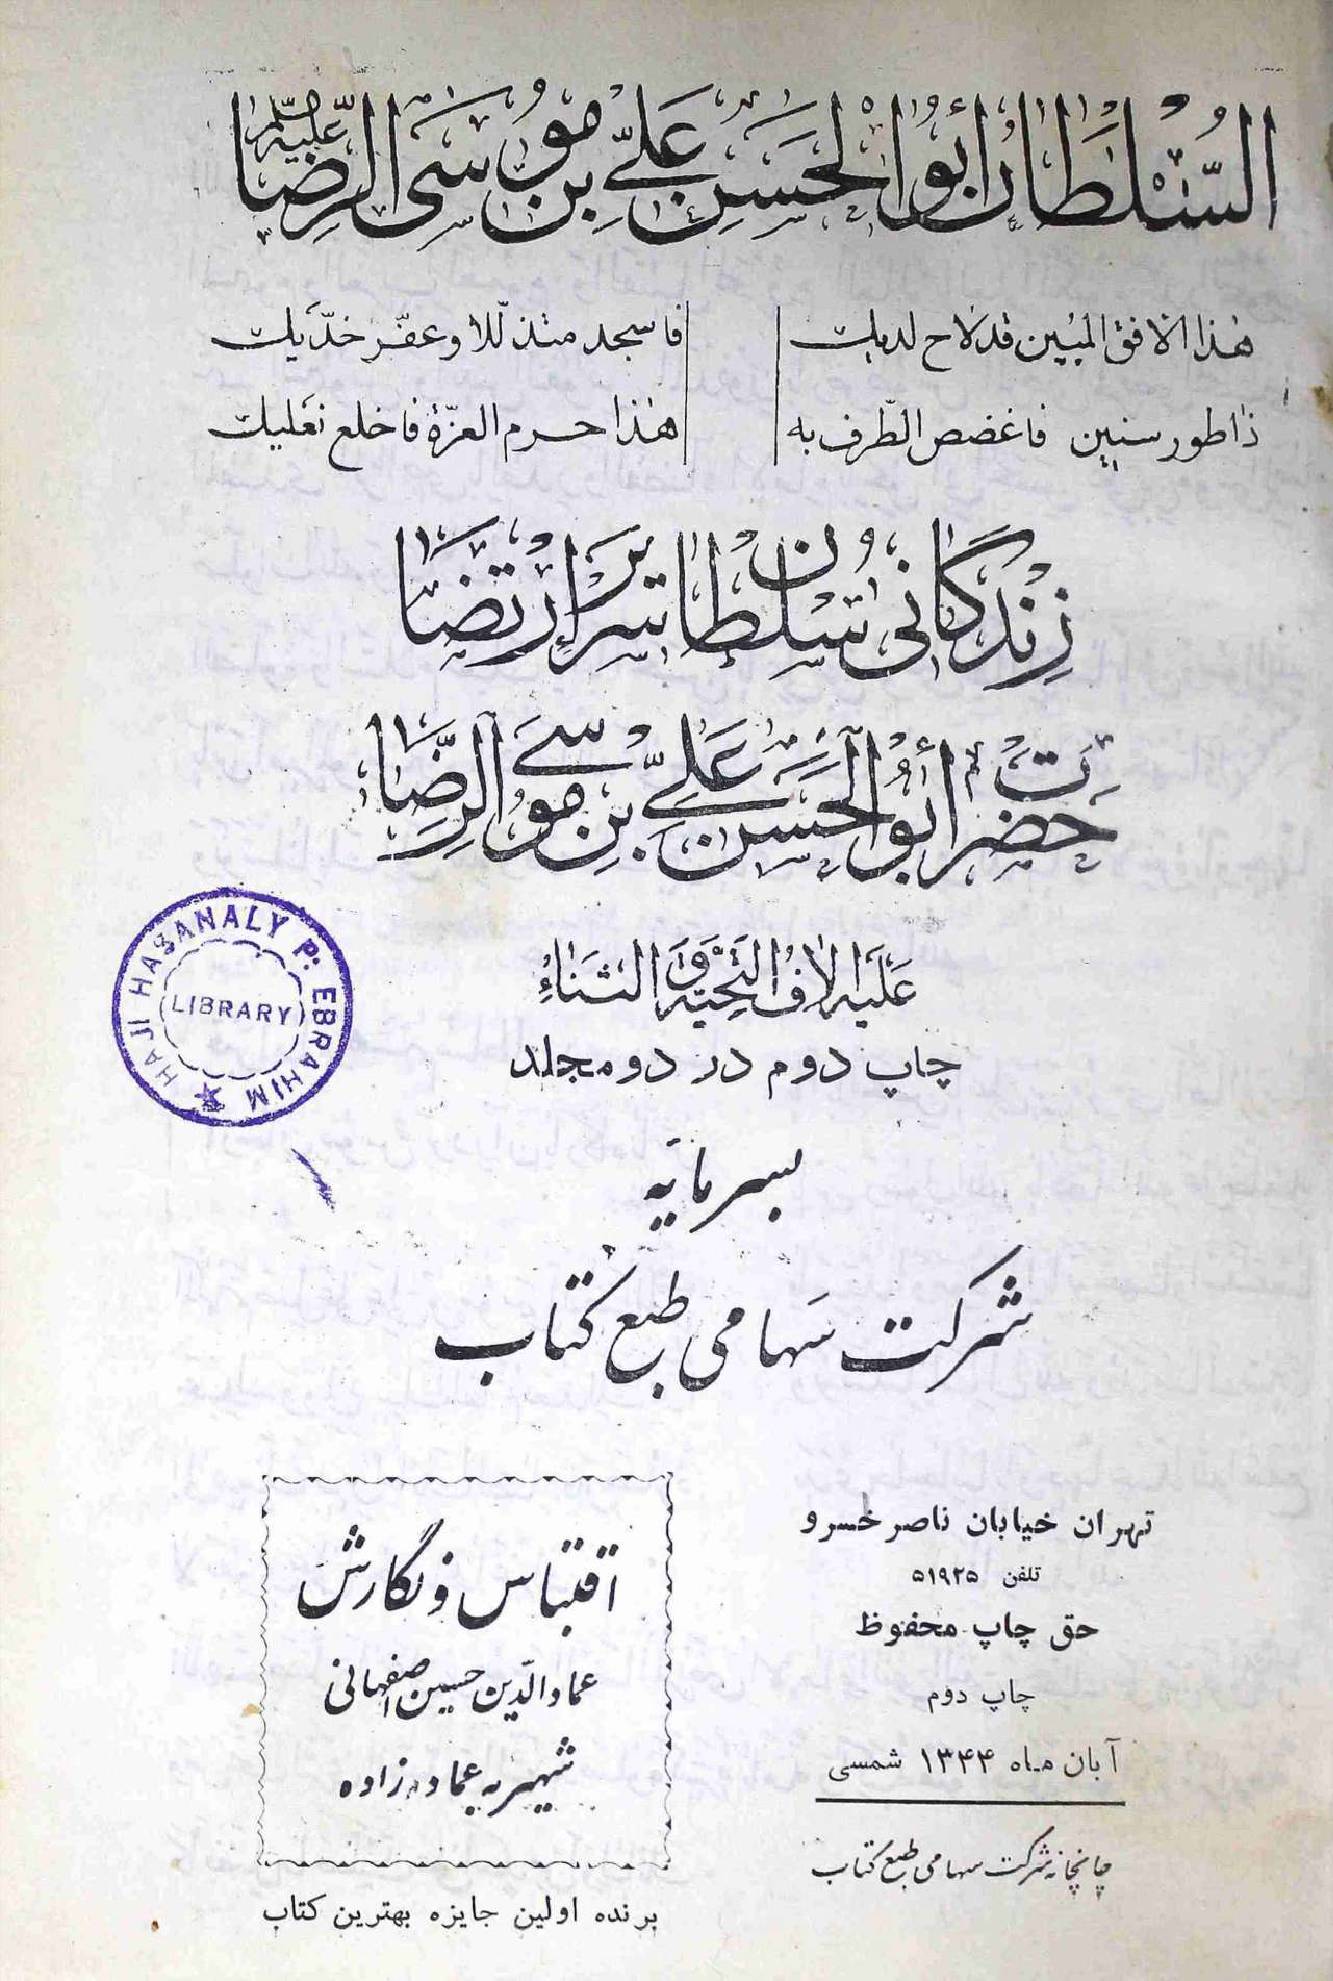 السُّلطان أبوالحسن علي بن موسى الرضا
هذا الافق المبين قد لاح لديك فاسجد متذللا و عفّر خدّيك
ذا طور سنين فاغضض الطّرف به هذا حرم العزّة فاخلع نعليك
زندگانی سلطان سریر ارتضا
حضرت أبوالحسن علي بن موسى الرضا
عليه الاف التحية و الثناء
چاپ دوم در دو مجلد
HAJI HASANALY P. EBRAHIM
LIBRARY
بسرمایه
شرکت سهامی طبع کتاب
تهران خیابان ناصرخسرو
تلفن ۵۱۹۲۵
حق چاپ محفوظ
چاپ دوم
آبان ماه ۱۳۴۴ شمسی
چاپخانه شرکت سهامی طبع کتاب
اقتباس و نگارش
عمادالدین حسین اصفهانی
شهیر به عمادزاده
برنده اولین جایزه بهترین کتاب